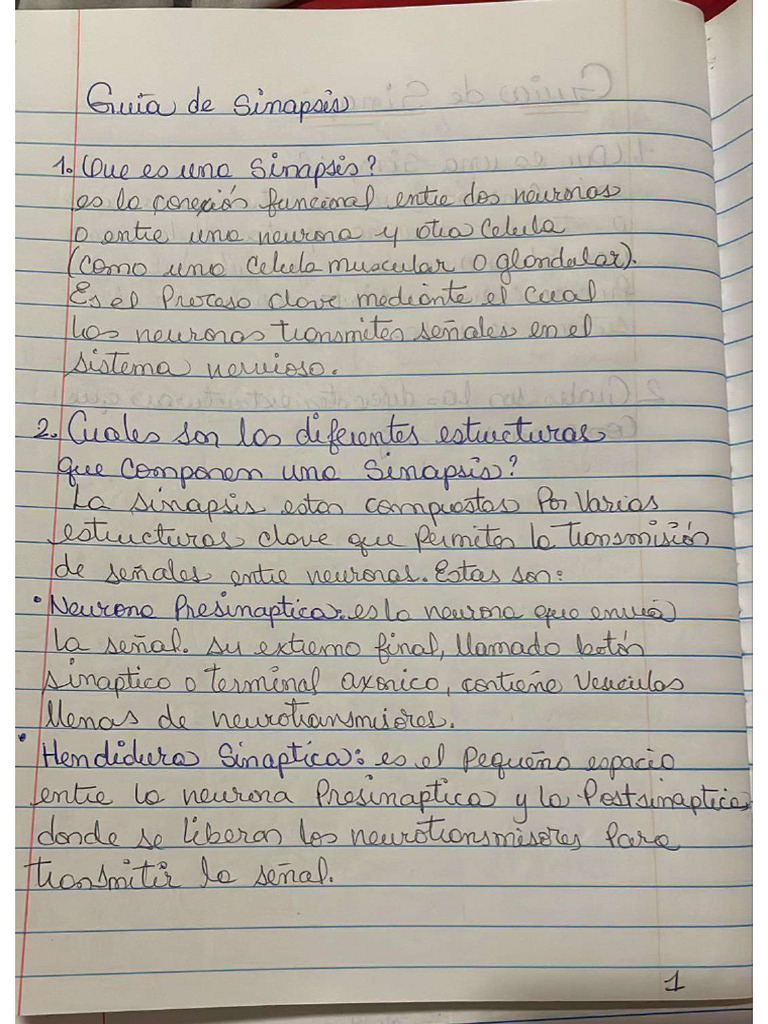 Guía de Sinapsis
1. Que es una Sinapsis?
es la conexión funcional entre dos neuronas
o entre una neurona y otra Celula
(como una Celula muscular o glandular).
Es el Proceso clave mediante el cual
Las neuronas transmiten señales en el
sistema nervioso.
2. Cuales son las diferentes estructuras
que componen una Sinapsis?
La sinapsis estan compuestas Por Varias
estructuras clave que permiten la transmisión
de señales entre neuronas. Estas son:
• Neurona Presinaptica: es la neurona que envia
la señal. su extremo final, llamado botón
sinaptico o terminal axonico, contiene vesiculas
llenas de neurotransmisores.
• Hendidura Sinaptica: es el pequeño espacio
entre la neurona Presinaptica y la Postsinaptica,
donde se liberan los neurotransmisores para
transmitir la señal.
1